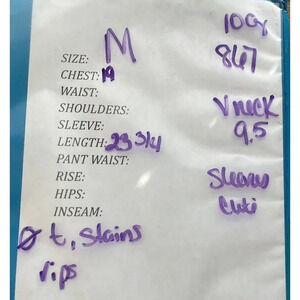 10Gr
SIZE: M
847
CHEST: 19
WAIST:
SHOULDERS:
V neck
SLEEVE:
9.5
LENGTH: 23 3/4
PANT WAIST:
RISE:
HIPS:
INSEAM:
Ø t, Stains
rips